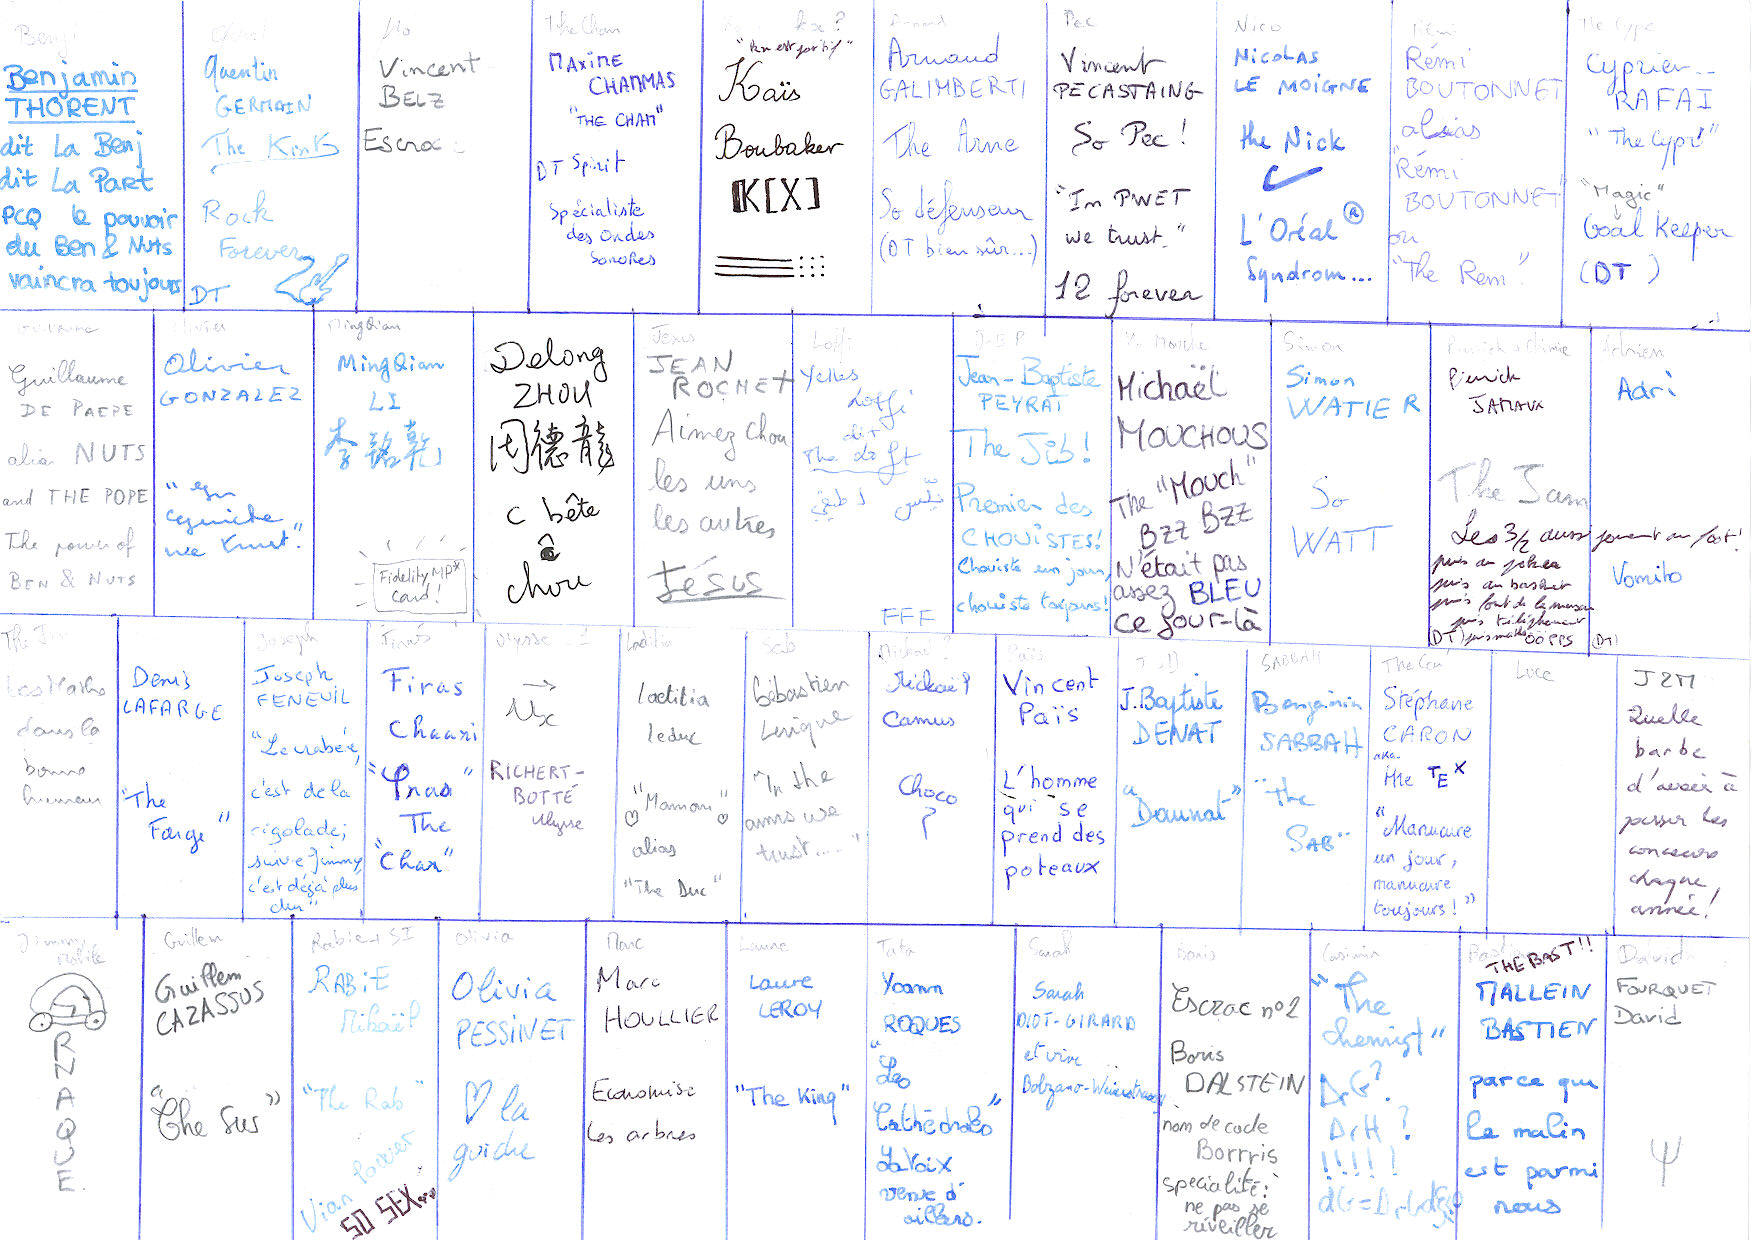 Benj
Benjamin
THORENT
dit La Benj
dit La Part
PCQ le pouvoir
du Ben & Nuts
vaincra toujours
Quentin
GERMAIN
The Kinks
Rock
Forever
DT
Vincent
BELZ
Escroc
The Cham
MAXIME
CHAMMAS
"THE CHAM"
DT Spirit
Spécialiste
des ondes
sonores
Kaïs
Boubaker
K[X]
Arnaud
GALIMBERTI
The Arne
So défenseur
(DT bien sûr...)
Pec
Vincent
PECASTAING
So Pec !
"In PWET
we trust."
12 forever
Nico
NICOLAS
LE MOIGNE
the Nick
L'Oréal ®
Syndrom...
Rémi
Rémi
BOUTONNET
alias
"Rémi
BOUTONNET"
ou
"The Rem"
The Cypr
Cyprien
RAFAI
"The Cypr"
"Magic"
Goal Keeper
(DT)
Guillaume
Guillaume
DE PAEPE
alias NUTS
and THE POPE
The power of
BEN & NUTS
Olivier
Olivier
GONZALEZ
we trust."
MingQian
MingQian
LI
李銘乾
Fidelity MP*
Card !
Delong
ZHOU
周德龍
C bête
ê
chou
Jésus
JEAN
ROCHET
Aimez chou
les uns
les autres
Jésus
Lotfi
Yelles
Lotfi
dit
The Loft
FFF
J-B P
Jean-Baptiste
PEYRAT
The Jib !
Premier des
CHOUISTES !
Chouiste un jour,
chouiste toujours !
Michaël
MOUCHOUS
The "Mouch"
BZZ BZZ
N'était pas
assez BLEU
ce jour-là
Simon
Simon
WATIER
So
WATT
Pierrick
JAMAUX
The Jam
Les 3/2 aussi jouent au foot !
Adrien
Adri
Vomito
(DT)
Les Maths
dans la
bonne
humeur
Denis
LAFARGE
"The
Farge"
Joseph
Joseph
FENEUIL
c'est de la
rigolade;
suivre Jimmy,
c'est déjà plus
dur"
Firas
Firas
Chaari
"Firas
The
"Char"
Ulysse
Ux
RICHERT-
BOTTÉ
Ulysse
Laetitia
Laetitia
Leduc
"Maman"
alias
"The Duc"
Seb
Sébastien
"In the
arms we
trust....."
Mickaël
Camus
Choco
?
Païs
Vincent
Païs
L'homme
qui se
prend des
poteaux
J-B D
J.Baptiste
DENAT
"Daunat"
SABBAH
Benjamin
SABBAH
"The
SAB"
Stéphane
CARON
aka
the TEX
"Manucure
un jour,
manucure
toujours !"
Luce
J2M
Quelle
barbe
d'avoir à
passer les
concours
chaque
année !
Jimmy
RNAQUE
Guillem
Guillem
CAZASSUS
"The Sus"
RABIE
Mikaël
"The Rab"
SO SEX...
Olivia
Olivia
PESSINET
♡ la
guiche
Marc
Marc
HOULLIER
Economise
les arbres
Laure
Laure
LEROY
"The King"
Yoann
ROQUES
"Les
Cathédrales"
La Voix
venue d'
ailleurs.
Sarah
Sarah
DIOT-GIRARD
et vive
Bolzano-Weierstrass
Boris
Escroc n°2
Boris
DALSTEIN
nom de code
Borrris
spécialité :
ne pas se
réveiller
Casimir
"The
chemist"
DrG ?
DrH ?
!!!!!
THE BAST !!
MALLEIN
BASTIEN
parce que
le malin
est parmi
nous
David
FOURQUET
David
Ψ